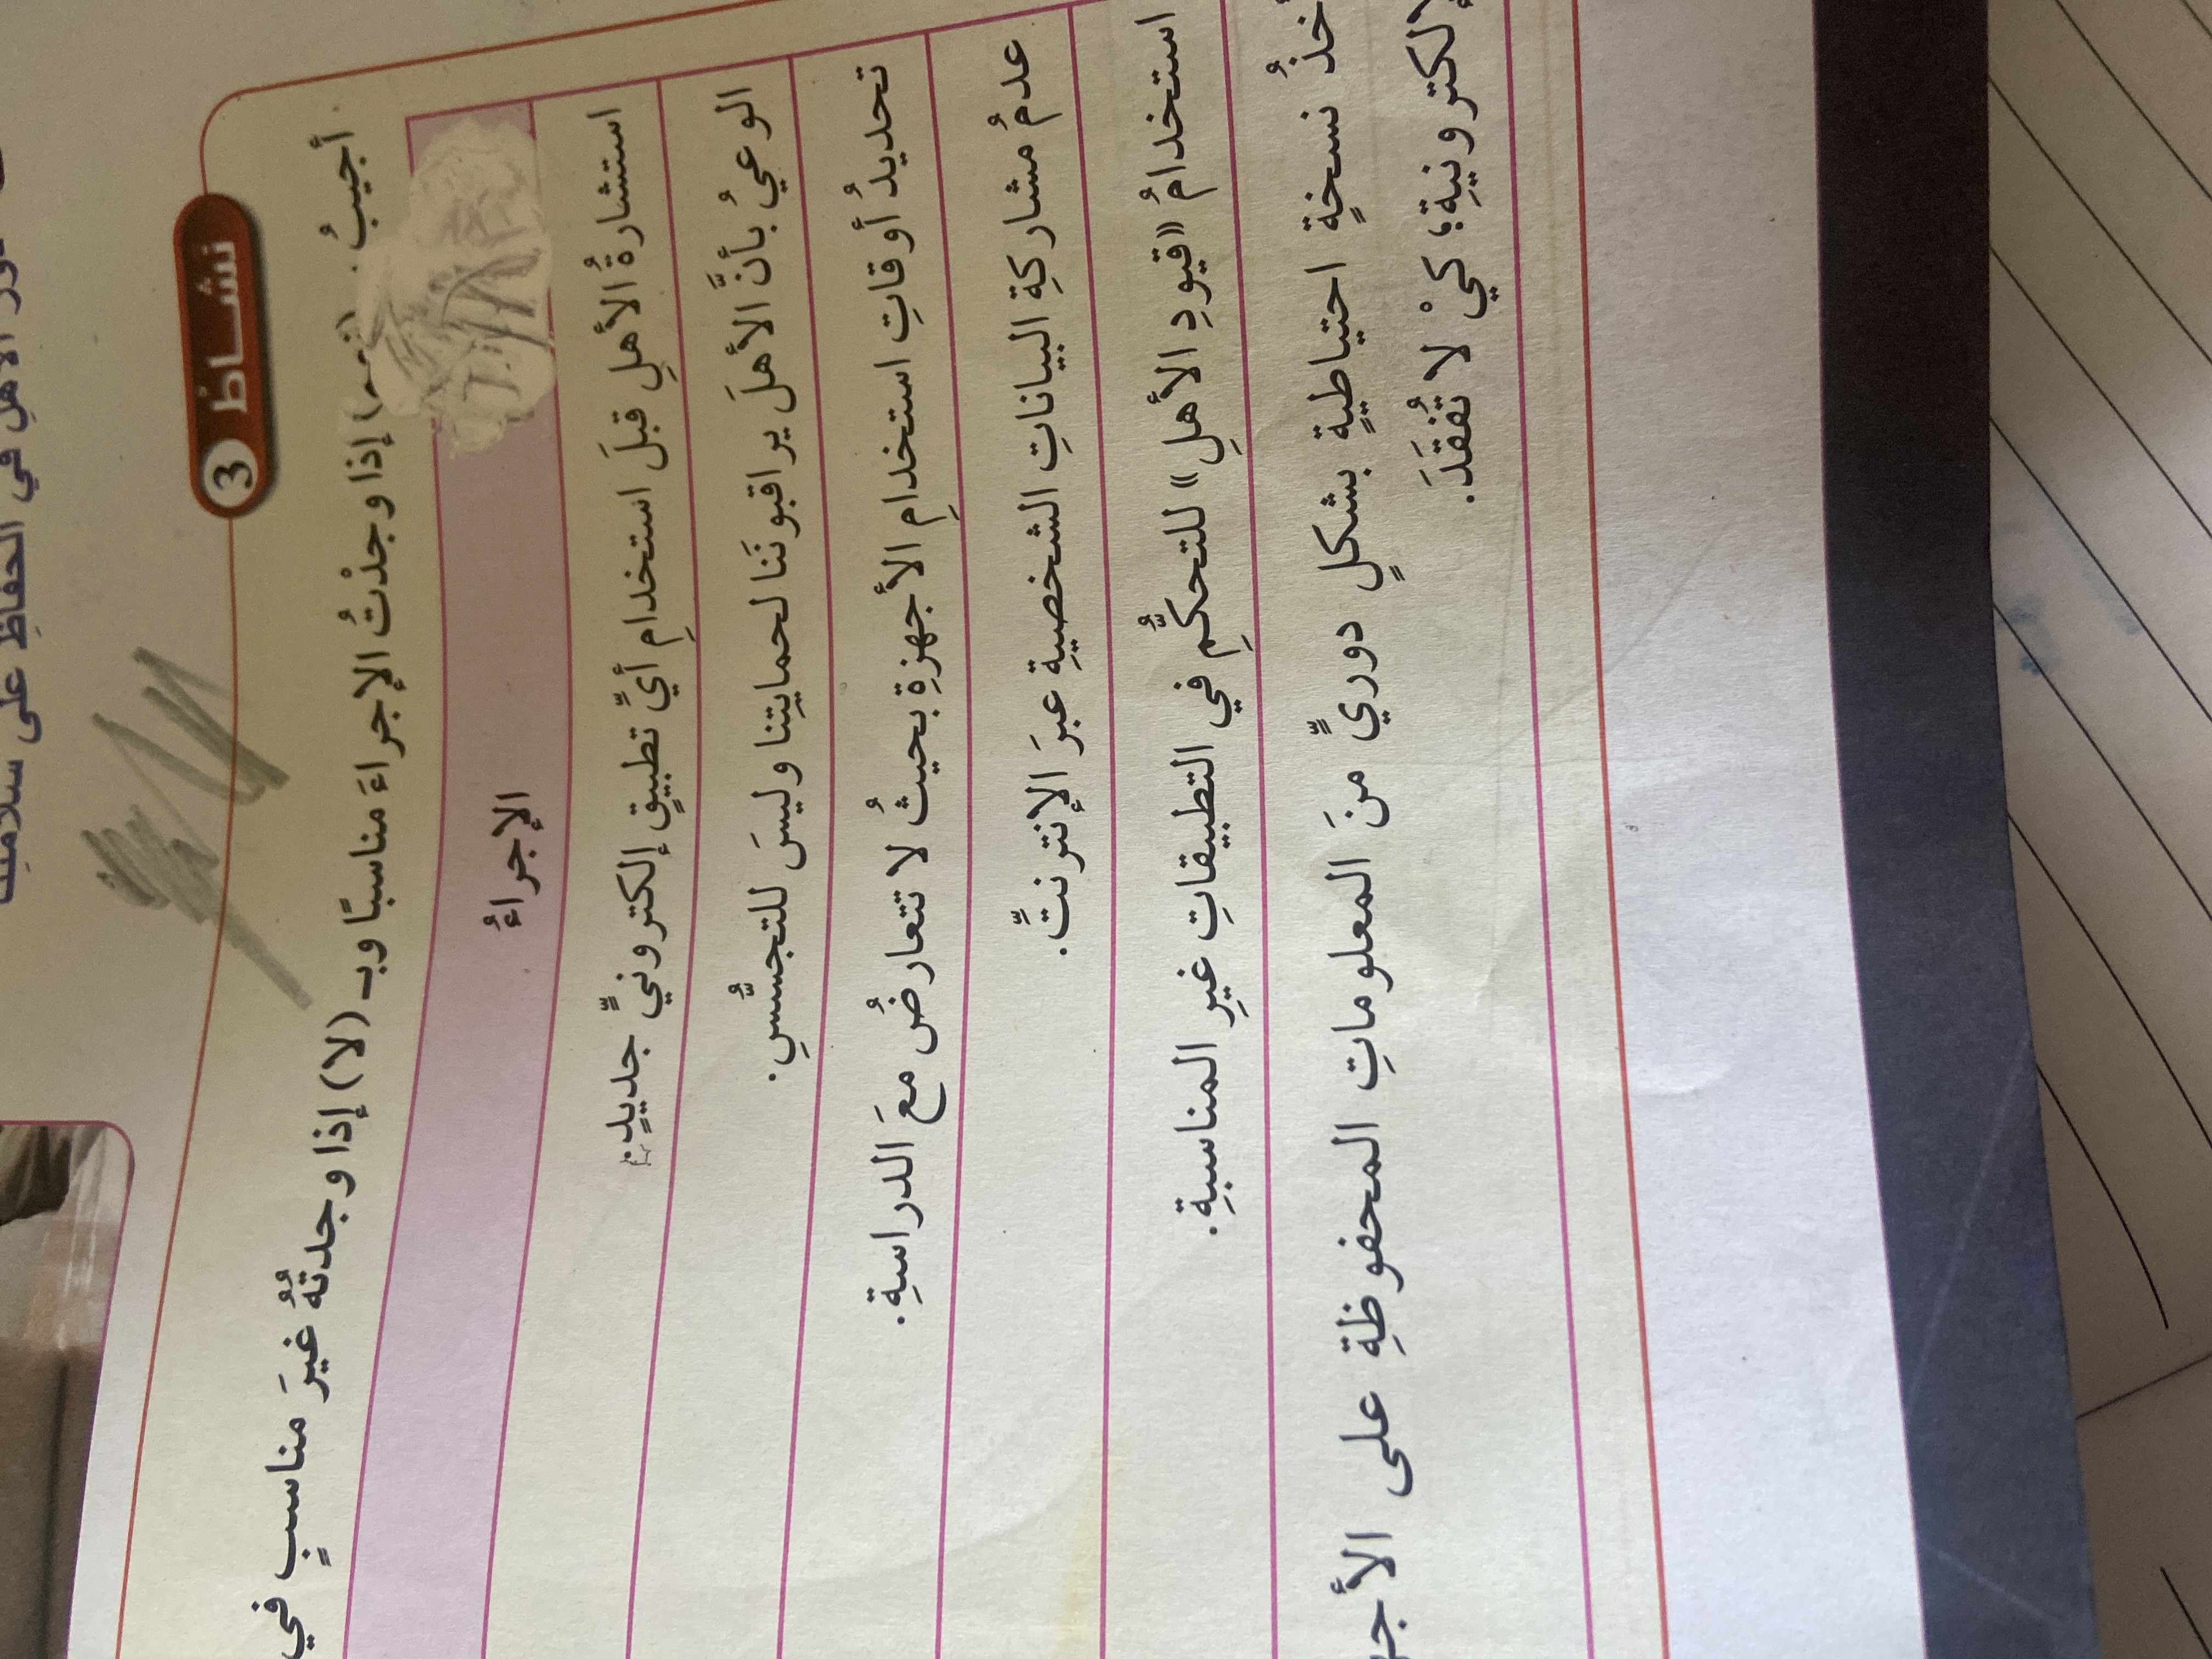 دور الأهلِ في الحفاظِ على سلامتِنا
نشــاطٌ 3
أجيبُ بـ (نعم) إذا وجدْتُ الإجراءَ مناسبًا وبـ (لا) إذا وجدتهُ غيرَ مناسبٍ في
الإجراءُ
استشارةُ الأهلِ قبلَ استخدامِ أيِّ تطبيقٍ إلكترونيٍّ جديدٍ.
الوعيُ بأنَّ الأهلَ يراقبونَنا لحمايتِنا وليسَ للتجسُّسِ.
تحديدُ أوقاتِ استخدامِ الأجهزةِ بحيثُ لا تتعارضُ معَ الدراسةِ.
عدمُ مشاركةِ البياناتِ الشخصيةِ عبرَ الإنترنتِّ.
استخدامُ «قيودِ الأهلِ» للتحكُّمِ في التطبيقاتِ غيرِ المناسبةِ.
أخذُ نسخةٍ احتياطيةٍ بشكلٍ دوريٍّ منَ المعلوماتِ المحفوظةِ على الأجه
لإلكترونيةِ؛ كيْ لا تُفقَدَ.